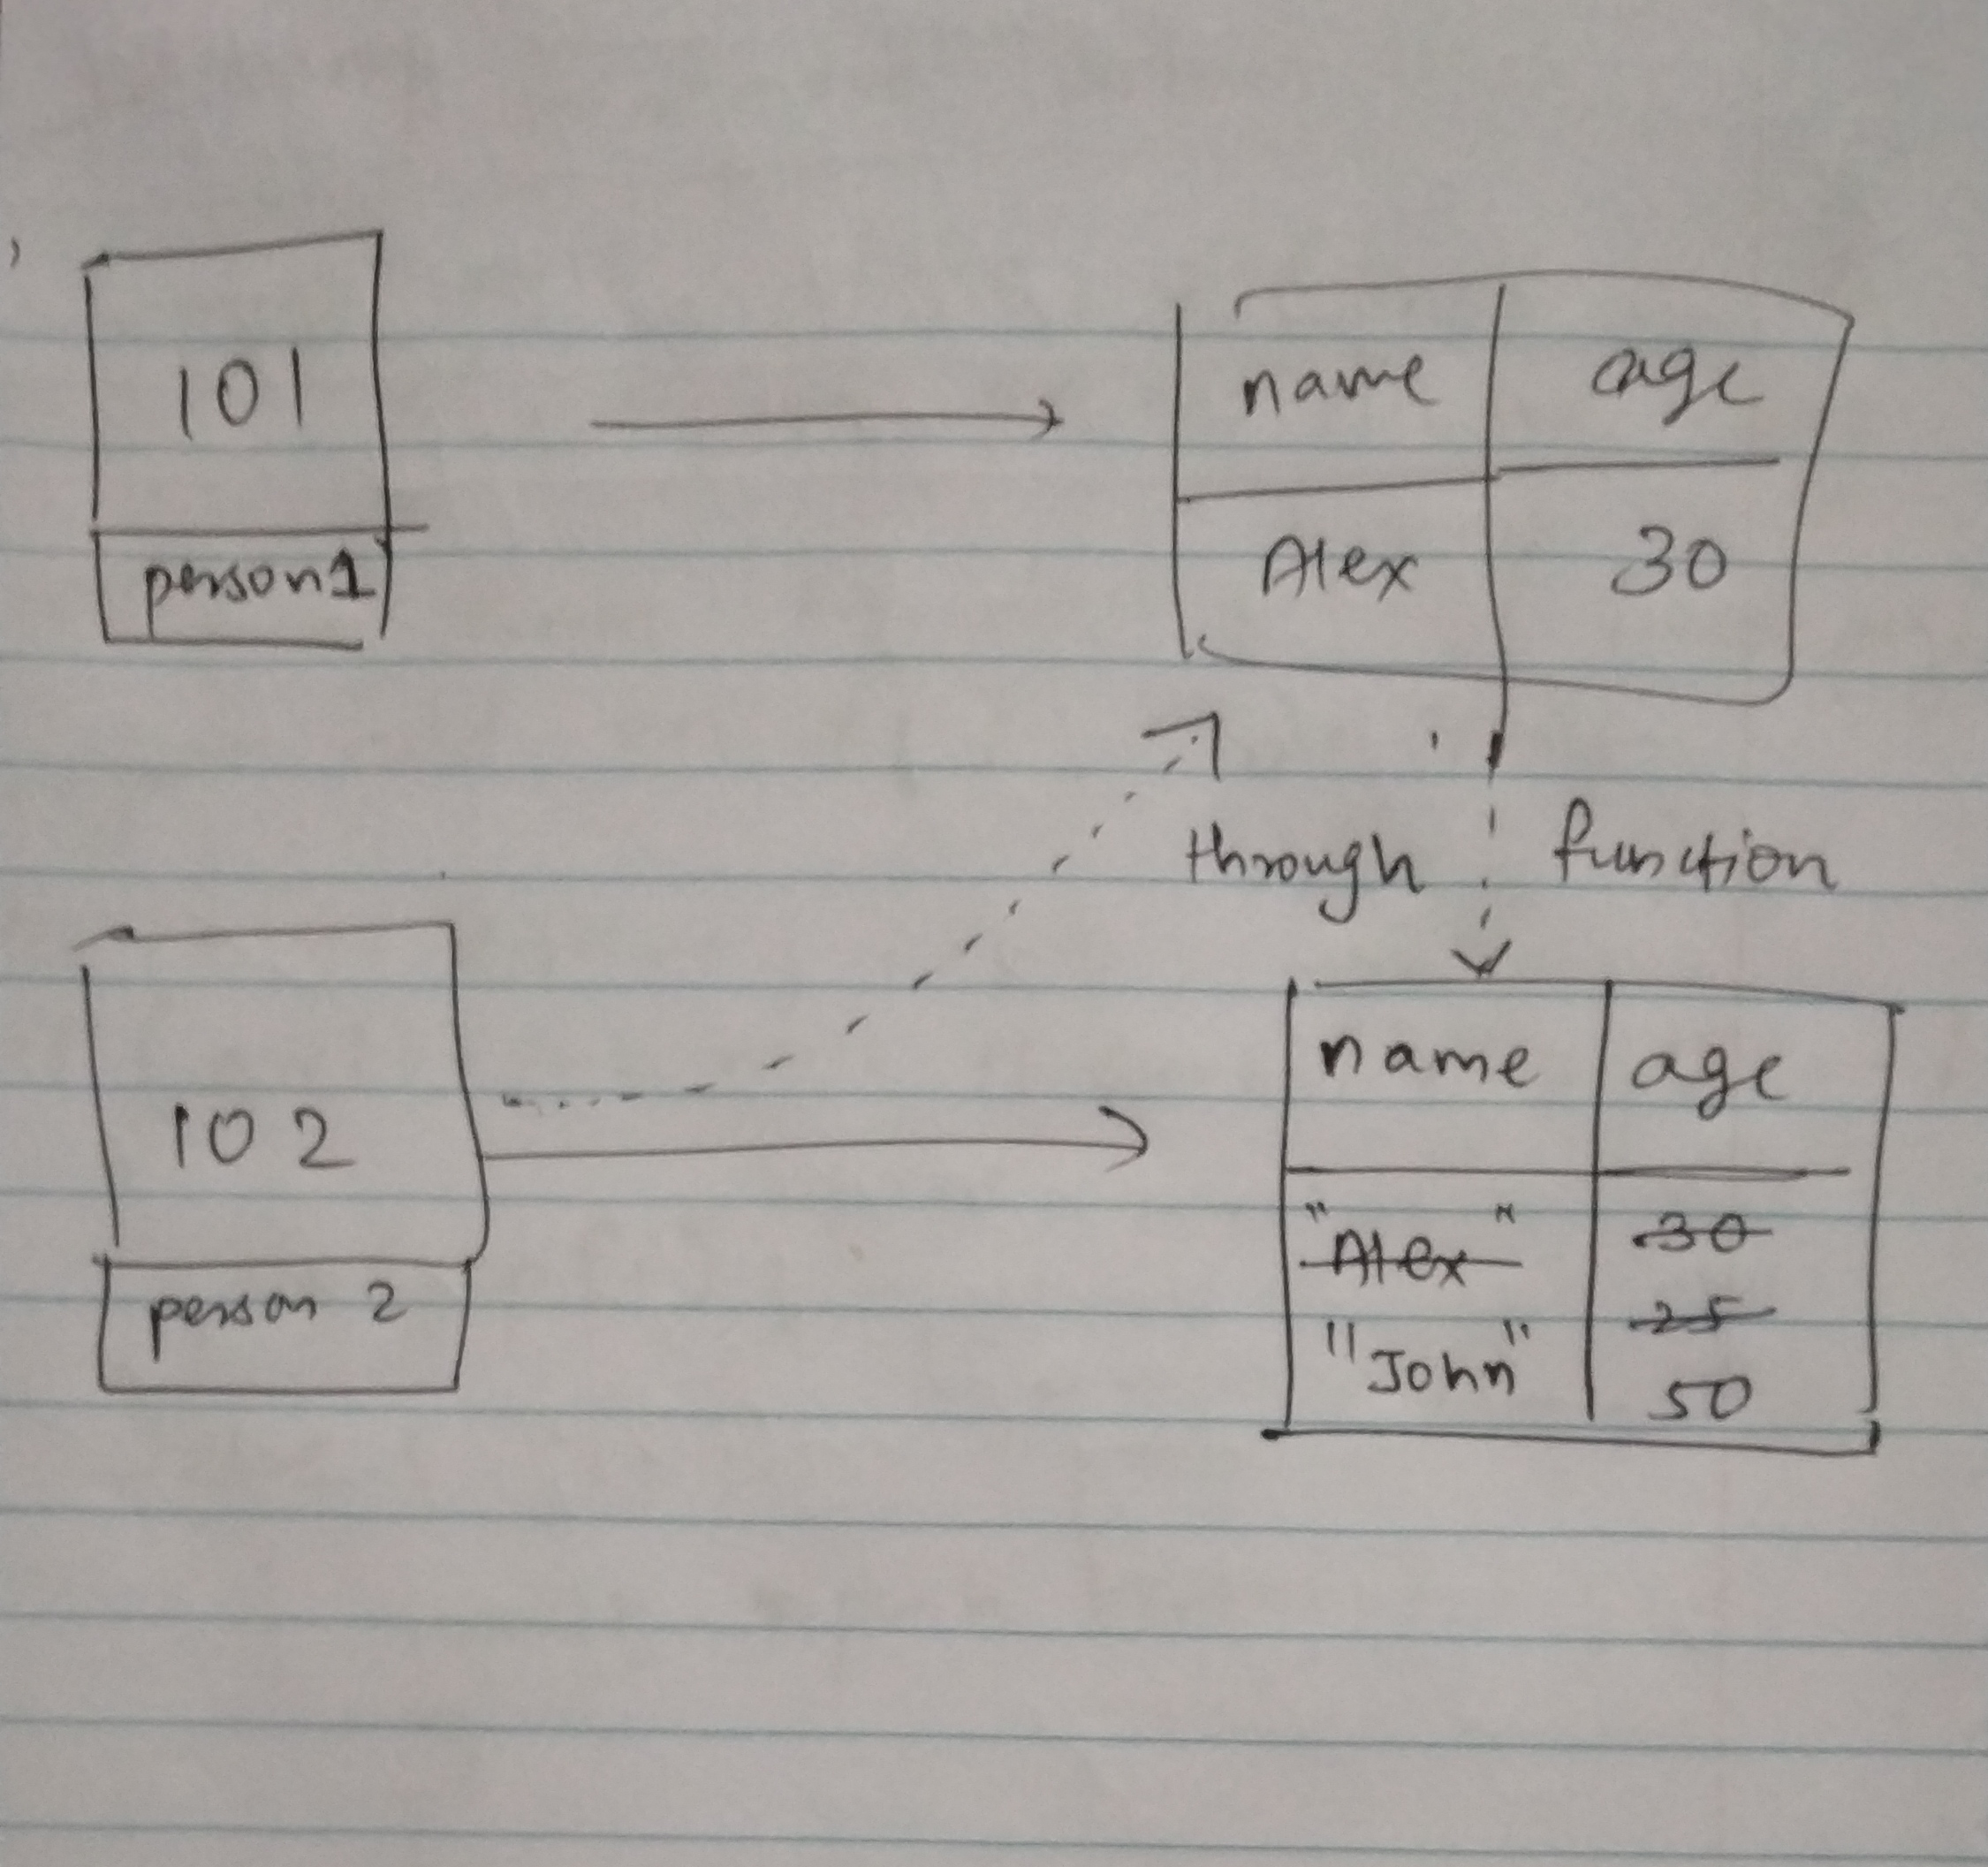 101
person1
name age
Alex 30
through function
102
person 2
name age
"Alex" 30
25
"John" 50